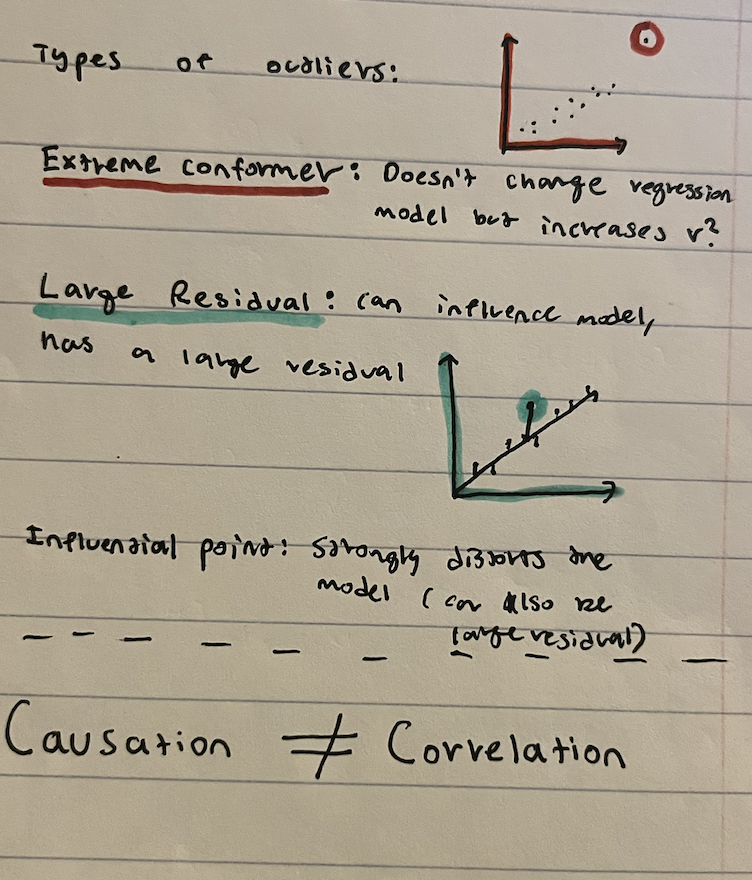 Types of outliers:
Extreme conformer: Doesn't change regression
model but increases r².
Large Residual: can influence model,
has a large residual
Influential point: Strongly distorts the
model (can also be
large residual)
Causation ≠ Correlation